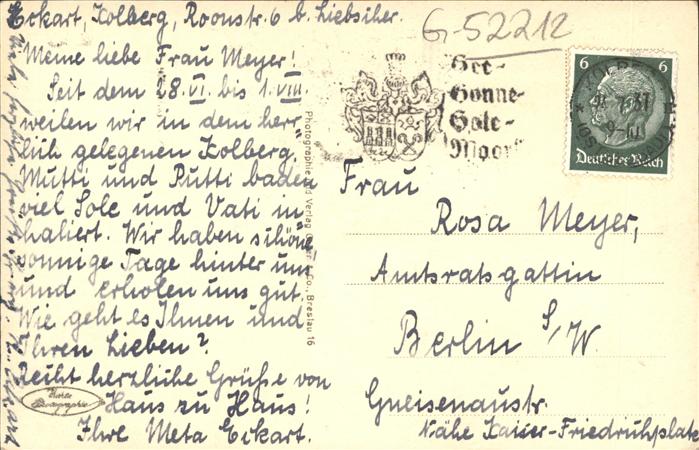 Eckart, Kolberg, Roonstr. 6 b. Liebscher.
Meine liebe Frau Meyer!
Seit dem 28. VI. bis 1. VIII.
weilen wir in dem herr
lich gelegenen Kolberg.
Mutti und Putti baden
viel Sole und Vati in
haliert. Wir haben schöne
sonnige Tage hinter uns
und erholen uns gut.
Wie geht es Ihnen und
Ihren Lieben?
Recht herzliche Grüße von
Haus zu Haus!
Ihre Meta Eckart.
Echte Photographie
Photographie und Verlag Co., Breslau 16
G-52212
See-
Sonne-
Sole-
Moor
KOLBERG
7.37
OSTSEEBAD
6 6
Deutsches Reich
Frau
Rosa Meyer,
Amtsratsgattin
Berlin S/W.
Gneisenaustr.
Nähe Kaiser-Friedrichplatz